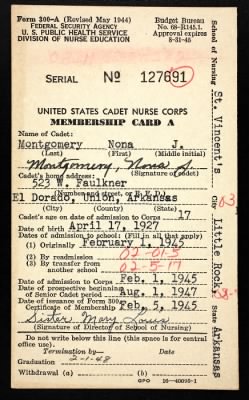 Form 300-A (Revised May 1944)
FEDERAL SECURITY AGENCY
U. S. PUBLIC HEALTH SERVICE
DIVISION OF NURSE EDUCATION
Budget Bureau
No. 68-R145.1.
Approval expires
8-31-45
SERIAL No 127691
UNITED STATES CADET NURSE CORPS
MEMBERSHIP CARD A
Name of Cadet:
Montgomery Nona J.
(Last) (First) (Middle initial)
Montgomery, Nona J.
Cadet's home address: (Signature of cadet)
523 W. Faulkner
(Number and street, or R. F. D.)
El Dorado, Union, Arkansas
(City) (County) (State)
Cadet's age on date of admission to Corps 17
Date of birth April 17, 1927
Dates of admission to school: (Fill in all that apply)
(1) Originally February 1, 1945
(2) By readmission 02-01-5
(3) By transfer from
another school 02-5-17
Date of admission to Corps Feb. 1, 1945
Date of prospective beginning
of Senior Cadet period Aug. 1, 1947
Date of issuance of Form 300—
Certificate of Membership Feb. 5, 1945
Sister Mary Louis
(Signature of Director of School of Nursing)
Do not write below this line (this space is for central
office use).
Termination by— Date
Graduation 2-1-48
Withdrawal (a) (b)
GPO 16-40095-1
School of Nursing St. Vincent's
City Little Rock
State Arkansas
03